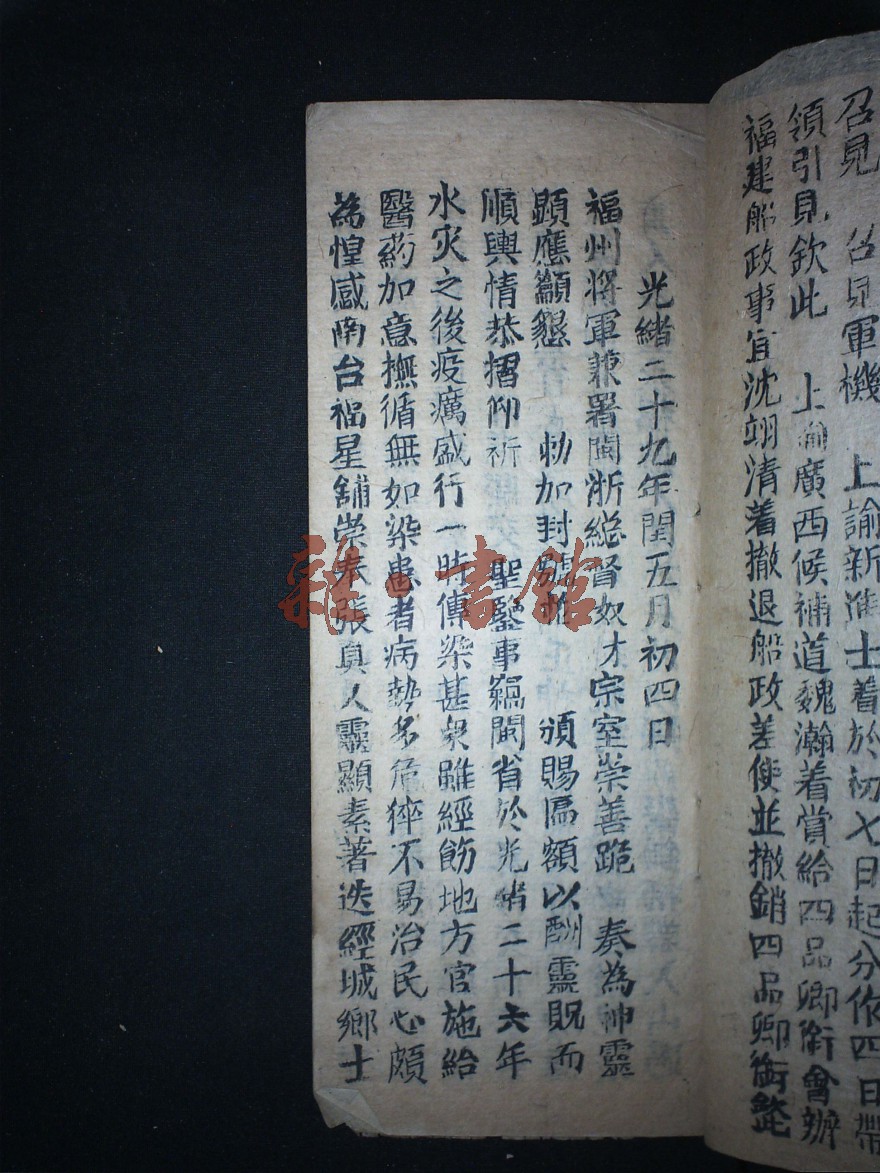 召見 召見軍機 上諭新進士着於初七日起分作四日帶
領引見欽此 上諭廣西候補道魏瀚着賞給四品卿衔會辦
福建船政事宜沈翊清着撤退船政差使並撤銷四品卿衔
光緒二十九年閏五月初四日
福州將軍兼署閩浙總督奴才宗室崇善跪 奏為神靈
顕應籲懇 勅加封號並 頒賜匾額以酬靈貺而
順輿情恭摺仰祈 聖鑒事竊閩省於光緒二十六年
水灾之後疫癘盛行一時傳染甚衆雖經飭地方官施給
醫药加意撫循無如染患者病勢多危猝不易治民心頗
為惶感南台福星舖崇奉張真人靈顯素著迭經城鄉士
雜·書館